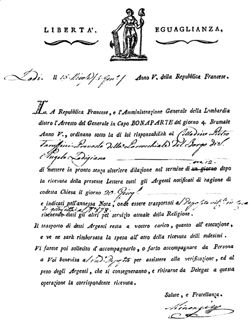 LIBERTA'. EGUAGLIANZA.
Anno V. della Repubblica Francese.
LA Repubblica Francese, e l'Amministrazione Generale della Lombardia
dietro l'Arresto del Generale in Capo BONAPARTE del giorno 4 Brumale
Anno V., ordinano sotto la di lei responsabilità al Cittadino Pietro
Prevosto della Parrocchiale del Borgo di S.
Angelo Lodigiano
ore 12
di mettere in pronto senza ulteriore dilazione nel termine di un giorno dopo
la ricevuta della presente lettera tutti gli Argenti notificati di ragione di
codesta Chiesa il giorno
e indicati nell'annessa Nota, onde essere trasportati al
riservando dagli altri pel servizio attuale della Religione.
Il trasporto di detti Argenti resta a vostro carico, quanto all'esecuzione,
e ve ne sarà rimborsata la spesa all'atto della ricevuta dei medesimi.
Vi farete poi sollecito d'accompagnarlo, o farlo accompagnare da Persona
a Voi benevisa al per assistere alla verificazione, ed al
peso degli Argenti, che si consegneranno, e ritirarne da Delegato a questa
operazione la corrispondente ricevuta.
Salute, e Fratellanza.